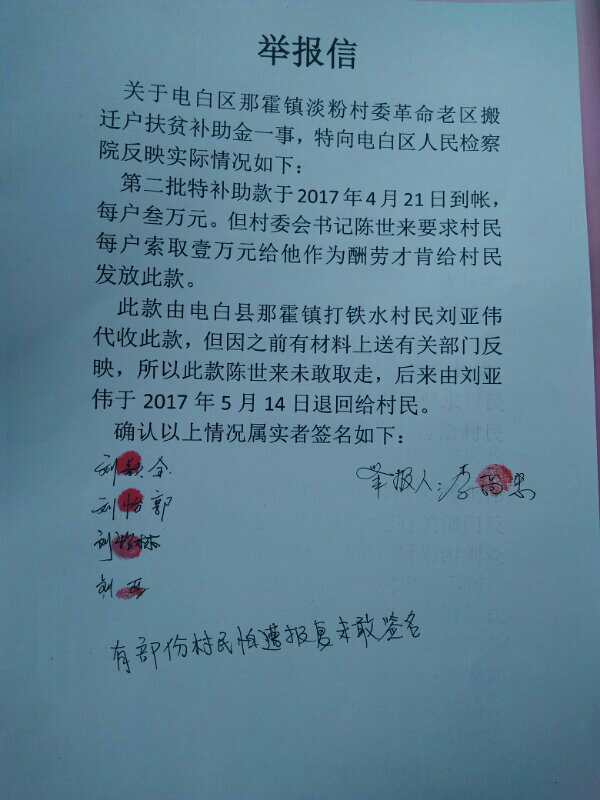 举报信
关于电白区那霍镇淡粉村委革命老区搬
迁户扶贫补助金一事，特向电白区人民检察
院反映实际情况如下：
第二批特补助款于2017年4月21日到帐，
每户叁万元。但村委会书记陈世来要求村民
每户索取壹万元给他作为酬劳才肯给村民
发放此款。
此款由电白县那霍镇打铁水村民刘亚伟
代收此款，但因之前有材料上送有关部门反
映，所以此款陈世来未敢取走，后来由刘亚
伟于2017年5月14日退回给村民。
确认以上情况属实者签名如下：
刘
举报人：李
刘怡郭
刘
刘亚
有部份村民怕遭报复未敢签名